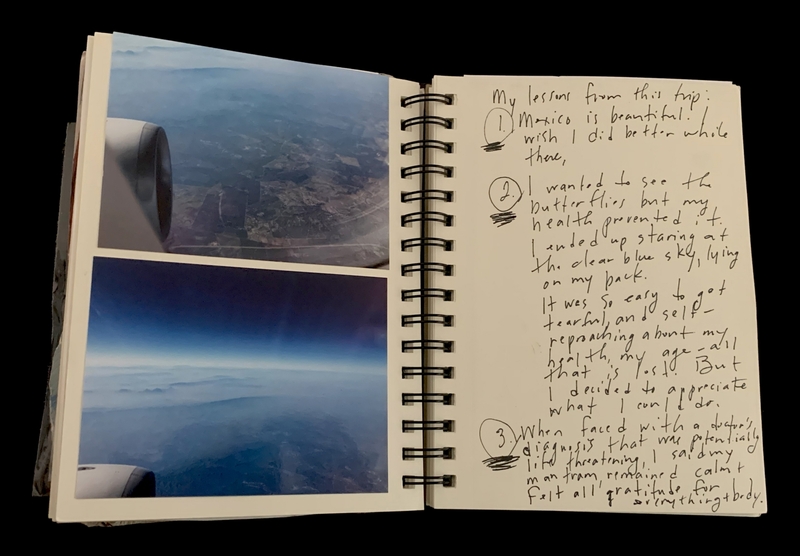 My lessons from this trip:
1. Mexico is beautiful. I
wish I did better while
there,
2. I wanted to see the
butterflies but my
health prevented it.
I ended up staring at
the clear blue sky, lying
on my pack.
It was so easy to get
tearful and self-
reproaching about my
health, my age - all
that is lost. But
I decided to appreciate
what I could do.
3. When faced with a doctor's
diagnosis that was potentially
life threatening, I said my
mantram, remained calm +
felt all gratitude for
everything + body.